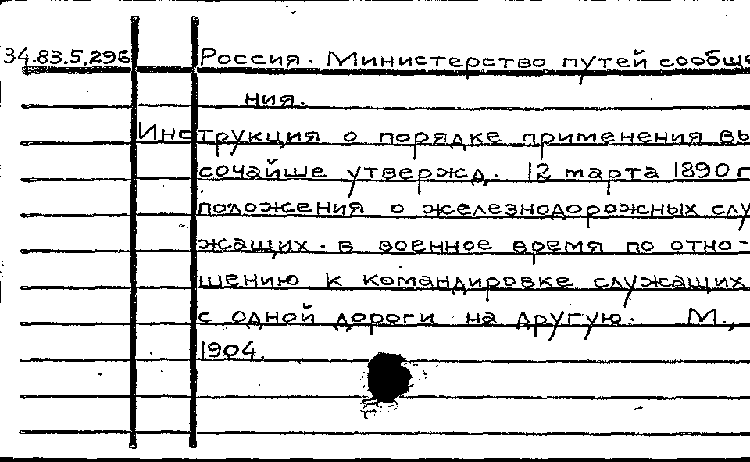 34.83.5.296 Россия. Министерство путей сообще
ния.
Инструкция о порядке применения вы
сочайше утвержд. 12 марта 1890 г
положения о железнодорожных слу
жащих. в военное время по отно-
шению к командировке служащих
с одной дороги на другую. М.,
1904.